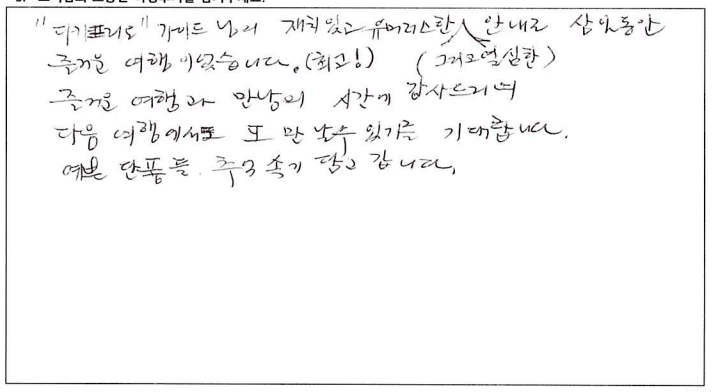 "디카프리오" 가이드 님의 재치있고 유머러스한 안내로 삼일동안
즐거운 여행이었습니다. (최고!) (그리고 열심한)
즐거운 여행과 만남의 시간에 감사드리며
다음 여행에서도 또 만날수 있기를 기대합니다.
예쁜 단풍들 추억 속에 담고 갑니다.